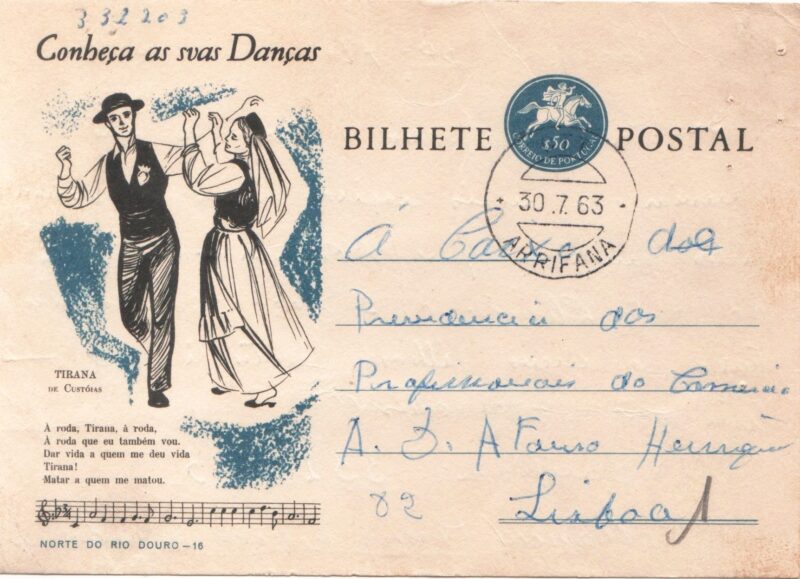 332203
Conheça as suas Danças
BILHETE POSTAL
$50
CORREIO DE PORTUGAL
30.7.63
ARRIFANA
À Caixa dos
Previdencia dos
Profissionais do Comercio
A. D. Afonso Henriques
82 Lisboa 1
TIRANA
DE CUSTÓIAS
À roda, Tirana, à roda,
À roda que eu também vou.
Dar vida a quem me deu vida
Tirana!
Matar a quem me matou.
NORTE DO RIO DOURO – 16